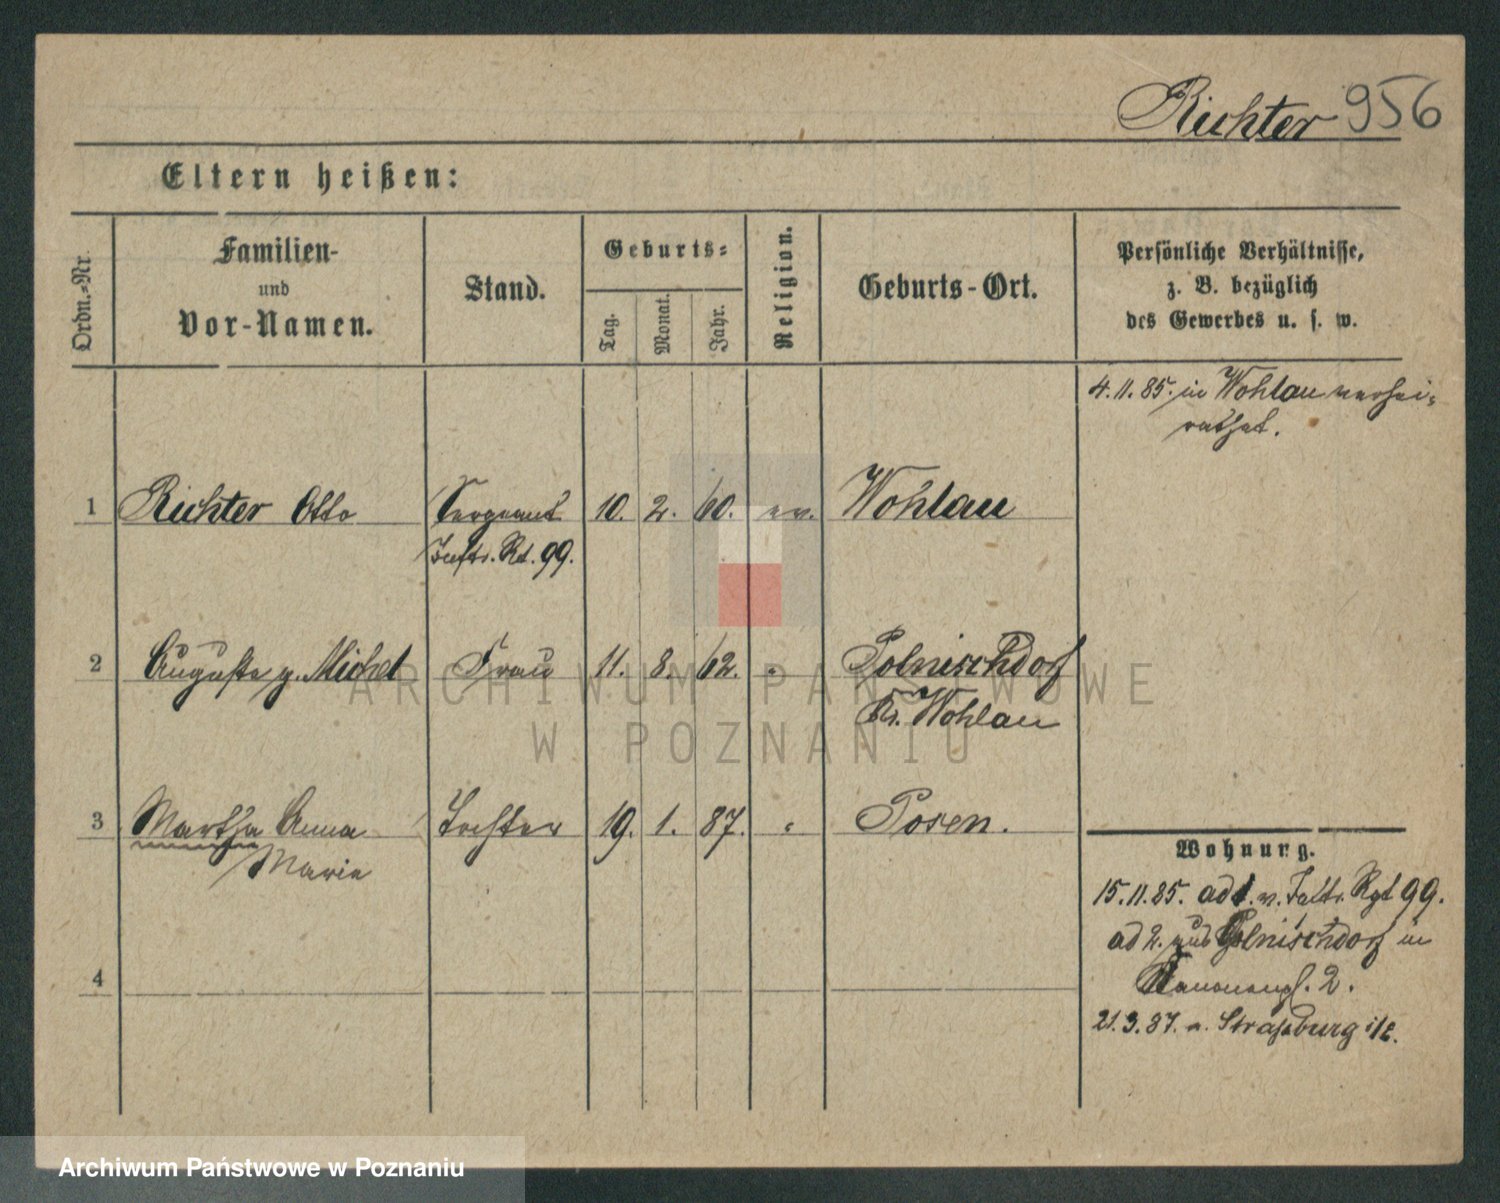 Richter 956
Eltern heißen:
Ordn.-Nr.
Familien-
und
Vor-Namen.
Stand.
Geburts-
Tag.
Monat.
Jahr.
Religion.
Geburts-Ort.
Persönliche Verhältnisse,
z. B. bezüglich
des Gewerbes u. s. w.
4.11.85. in Wohlau verhei-
rathet.
1 Richter Otto Sergeant 10. 2. 60. ev. Wohlau
Inftr. Rt. 99.
2 Auguste g. Michel Frau 11. 8. 62. " Polnischdorf
Kr. Wohlau
3 Martha Anna Tochter 19. 1. 87. " Posen.
Marie
Wohnung.
15.11.85. ad 1. v. Inftr. Rgt 99.
ad 2. aus Polnischdorf in
2.
4
21.3.87. n. Strassburg i/E.
ARCHIWUM PAŃSTWOWE
W POZNANIU
Archiwum Państwowe w Poznaniu